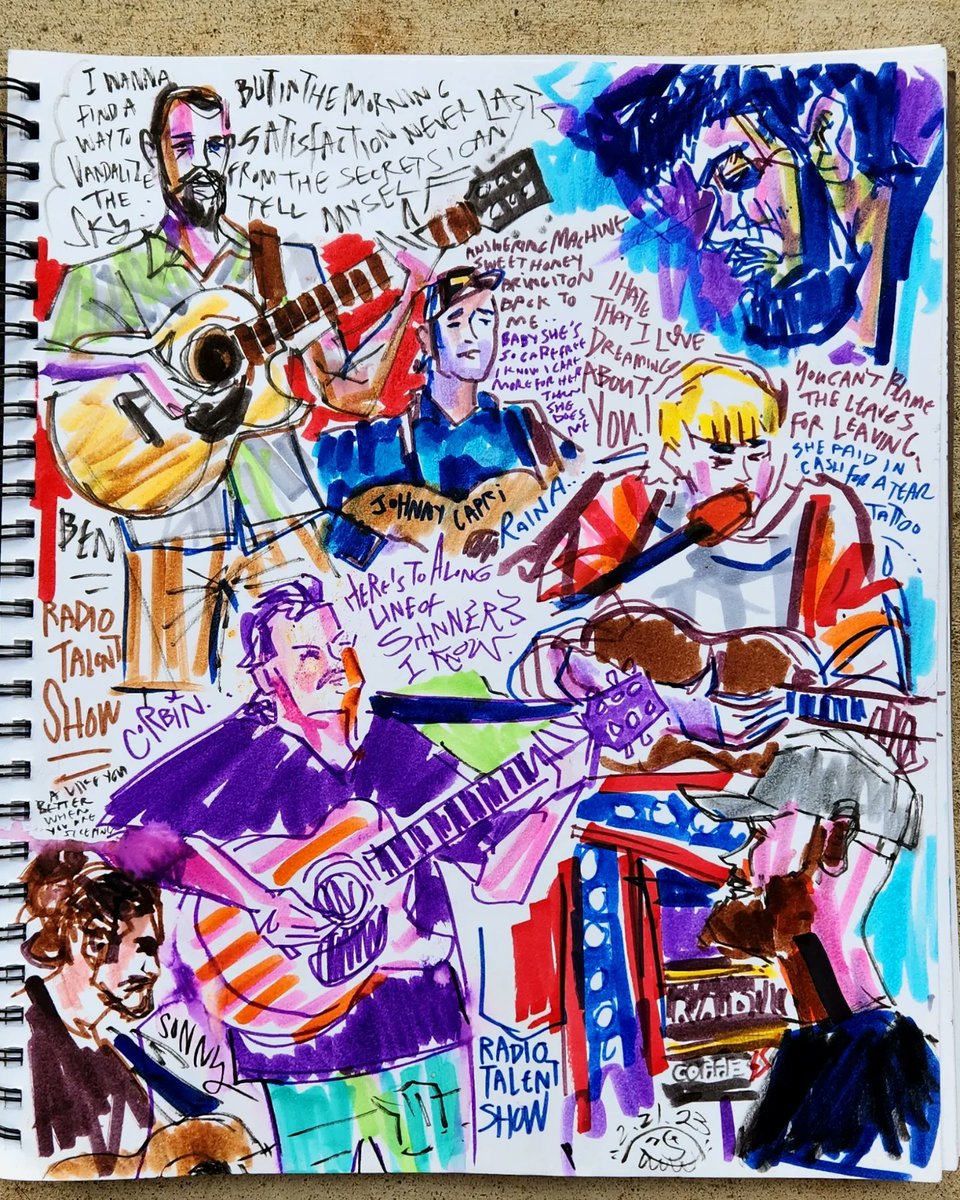 I WANNA
FIND A
WAY TO
VANDALIZE
THE
SKY.
BUT IN THE MORNING
SATISFACTION NEVER LASTS
FROM THE SECRETS I CAN
TELL MYSELF
ANSWERING MACHINE
SWEET HONEY
BRING IT ON
BACK TO
ME..
BABY SHE'S
SO CAREFREE
I KNOW I CARE
MORE FOR HER
THAN
SHE
DOES
ME
I HATE
THAT I LOVE
DREAMING
ABOUT
YOU!
YOU CAN'T BLAME
THE LEAVES
FOR LEAVING,
SHE PAID IN
CASH FOR A TEAR
TATTOO
JOHNNY CAPRI
RAINA..
BEN
RADIO
TALENT
SHOW
HERE'S TO A LONG
LINE OF
SINNERS
I KNOW.
CORBIN.
BETTER
WHEN
YOU ARE
SLEEPING
SONNY
RADIO
TALENT
SHOW
RADIO
COFFEE
21 23